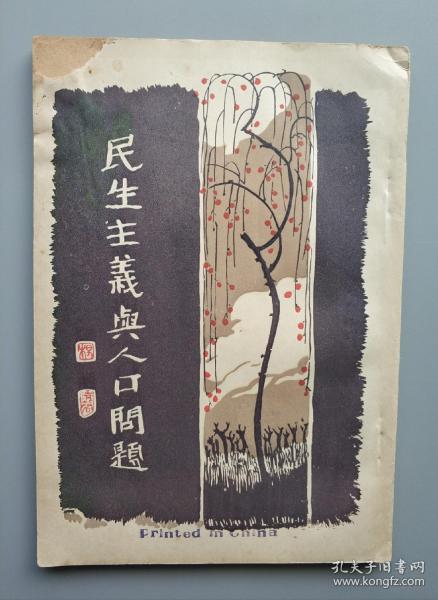 民生主義與人口問題
Printed in China
孔夫子旧书网
www.kongfz.com